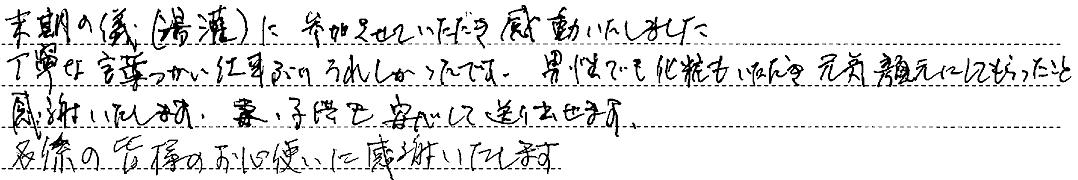 末期の儀(湯灌)に参加させていただき感動いたしました
丁寧な言葉づかい仕事ぶりうれしかったです。男性でも化粧もいただき元気顔元にしてもらったこと
感謝いたします。妻、子供も安心して送り出せます。
各係の皆様のお心使いに感謝いたします